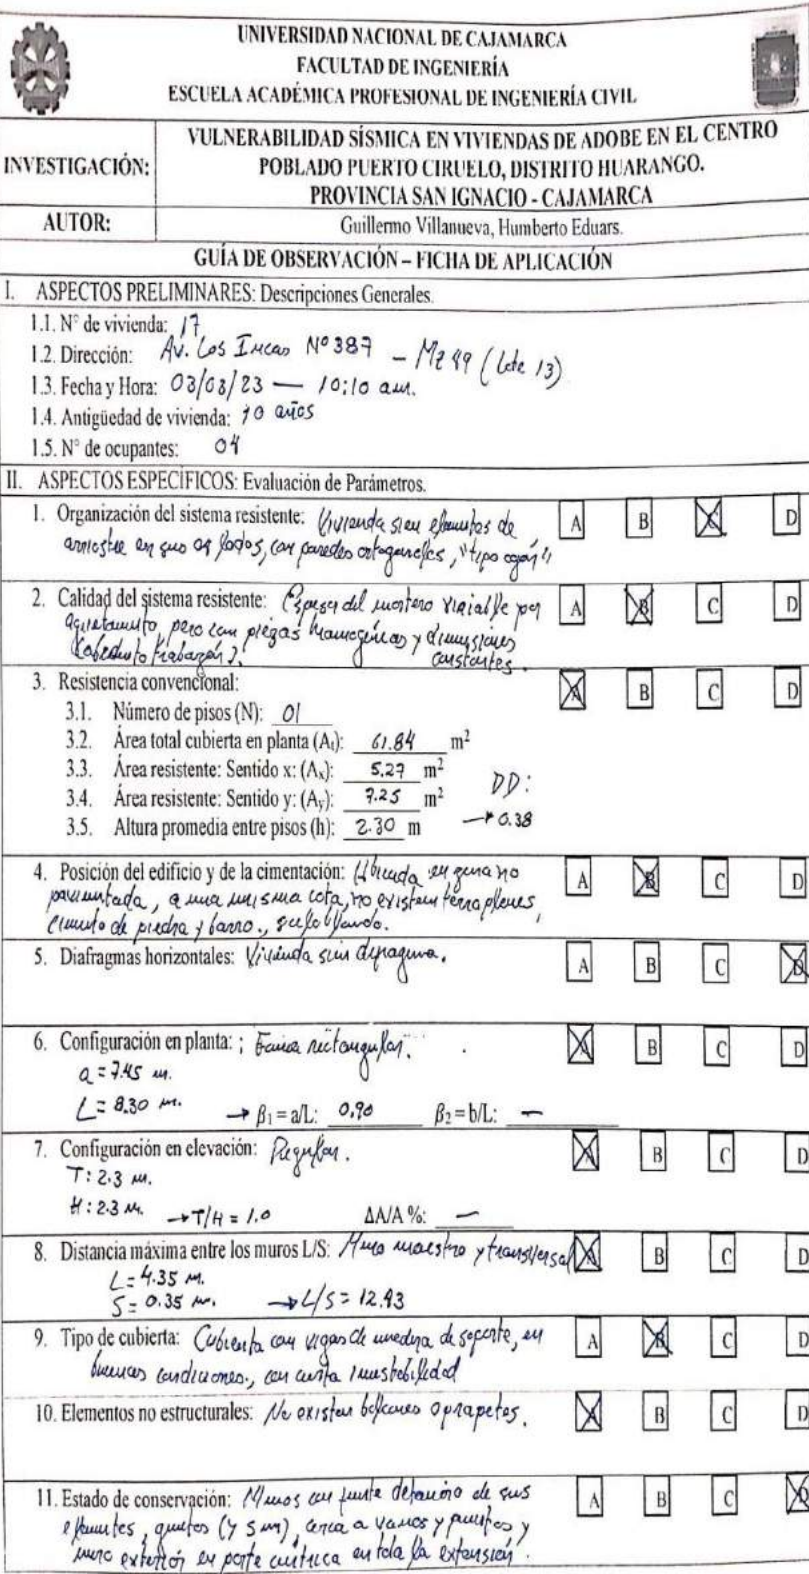 UNIVERSIDAD NACIONAL DE CAJAMARCA
FACULTAD DE INGENIERÍA
ESCUELA ACADÉMICA PROFESIONAL DE INGENIERÍA CIVIL
INVESTIGACIÓN:
VULNERABILIDAD SÍSMICA EN VIVIENDAS DE ADOBE EN EL CENTRO
POBLADO PUERTO CIRUELO, DISTRITO HUARANGO.
PROVINCIA SAN IGNACIO - CAJAMARCA
AUTOR: Guillermo Villanueva, Humberto Eduars.
GUÍA DE OBSERVACIÓN – FICHA DE APLICACIÓN
I. ASPECTOS PRELIMINARES: Descripciones Generales.
1.1. N° de vivienda: 17
1.2. Dirección: Av. Los Incas N° 387 – Mz 49 (Lote 13)
1.3. Fecha y Hora: 03/03/23 — 10:10 am.
1.4. Antigüedad de vivienda: 10 años
1.5. N° de ocupantes: 04
II. ASPECTOS ESPECÍFICOS: Evaluación de Parámetros.
1. Organización del sistema resistente: Vivienda sin elementos de A B C D
arriostre en sus 04 lados, con paredes ortogonales, "tipo cajón"
2. Calidad del sistema resistente: Espesor del mortero variable por A B C D
agrietamiento pero con piezas homogéneas y dimensiones
constantes.
3. Resistencia convencional: A B C D
3.1. Número de pisos (N): 01
3.2. Área total cubierta en planta (At): 61.84 m²
3.3. Área resistente: Sentido x: (Ax): 5.27 m²
3.4. Área resistente: Sentido y: (Ay): 7.25 m² DD:
3.5. Altura promedia entre pisos (h): 2.30 m → 0.38
4. Posición del edificio y de la cimentación: Ubicada en zona no A B C D
pavimentada, a una misma cota, no existen terraplenes,
cimiento de piedra y barro., suelo blando.
5. Diafragmas horizontales: Vivienda sin diafragma. A B C D
6. Configuración en planta: ; Forma rectangular. A B C D
a = 7.45 m.
L = 8.30 m. → β1 = a/L: 0.90 β2 = b/L: —
7. Configuración en elevación: Regular. A B C D
T: 2.3 m.
H: 2.3 m. → T/H = 1.0 ΔA/A %: —
8. Distancia máxima entre los muros L/S: Muro maestro y transversal A B C D
L = 4.35 m.
S = 0.35 m. → L/S = 12.43
9. Tipo de cubierta: Cubierta con vigas de madera de soporte, en A B C D
buenas condiciones., con cierta inestabilidad
10. Elementos no estructurales: No existen balcones o parapetos. A B C D
11. Estado de conservación: Muros con fuerte deterioro de sus A B C D
elementos, grietas (4 5 mm), cerca a vanos y puertas y
muro exterior en parte crítica en toda la extensión.